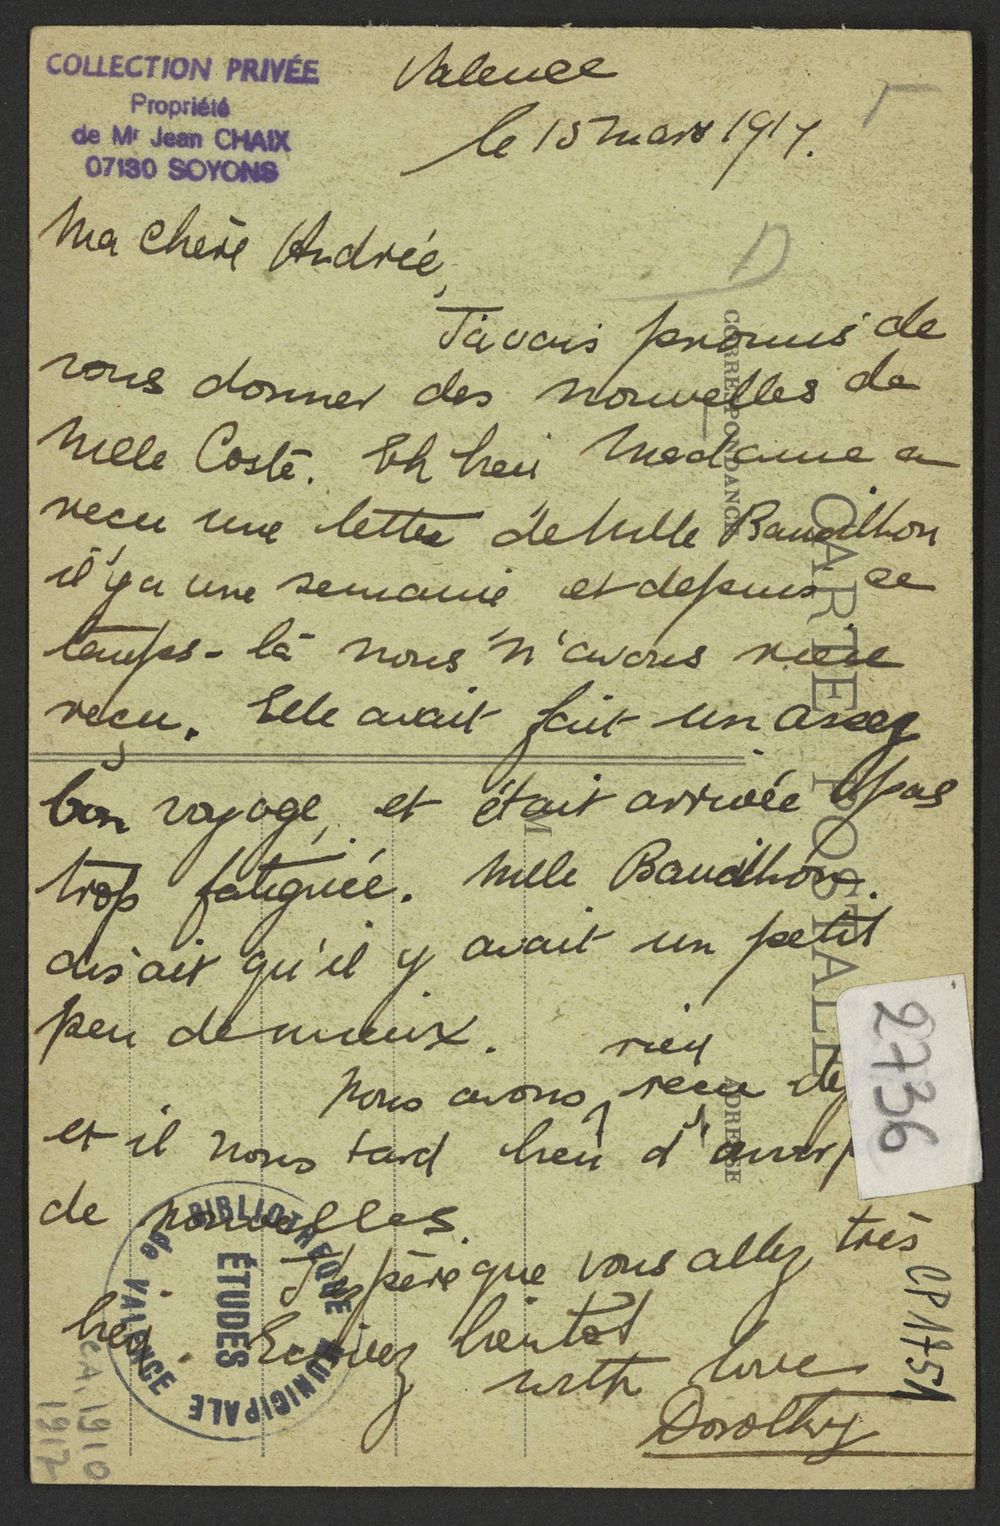 COLLECTION PRIVÉE
Propriété
de Mr Jean CHAIX
07130 SOYONS
Valence
le 15 mars 1917.
D
Ma chère Andrée,
J'avais promis de
vous donner des nouvelles de
Melle Coste. Eh bien Madame a
recu une lettre de Melle Baudilhon
il y a une semaine et depuis ce
temps-là nous n'avons rien
reçu. Elle avait fait un assez
bon voyage, et était arrivée pas
trop fatiguée. Melle Baudilhon.
disait qu'il y avait un petit
peu de mieux.
rien
Nous avons recu
et il nous tard bien d'avoir
de nouvelles.
J'espère que vous allez très
bien. Ecrivez bientot
with love
Dorothy
CARTE POSTALE
CORRESPONDANCE
ADRESSE
M
2736
CP1751
BIBLIOTHEQUE MUNICIPALE
de VALENCE
ÉTUDES
CA. 1910
1917